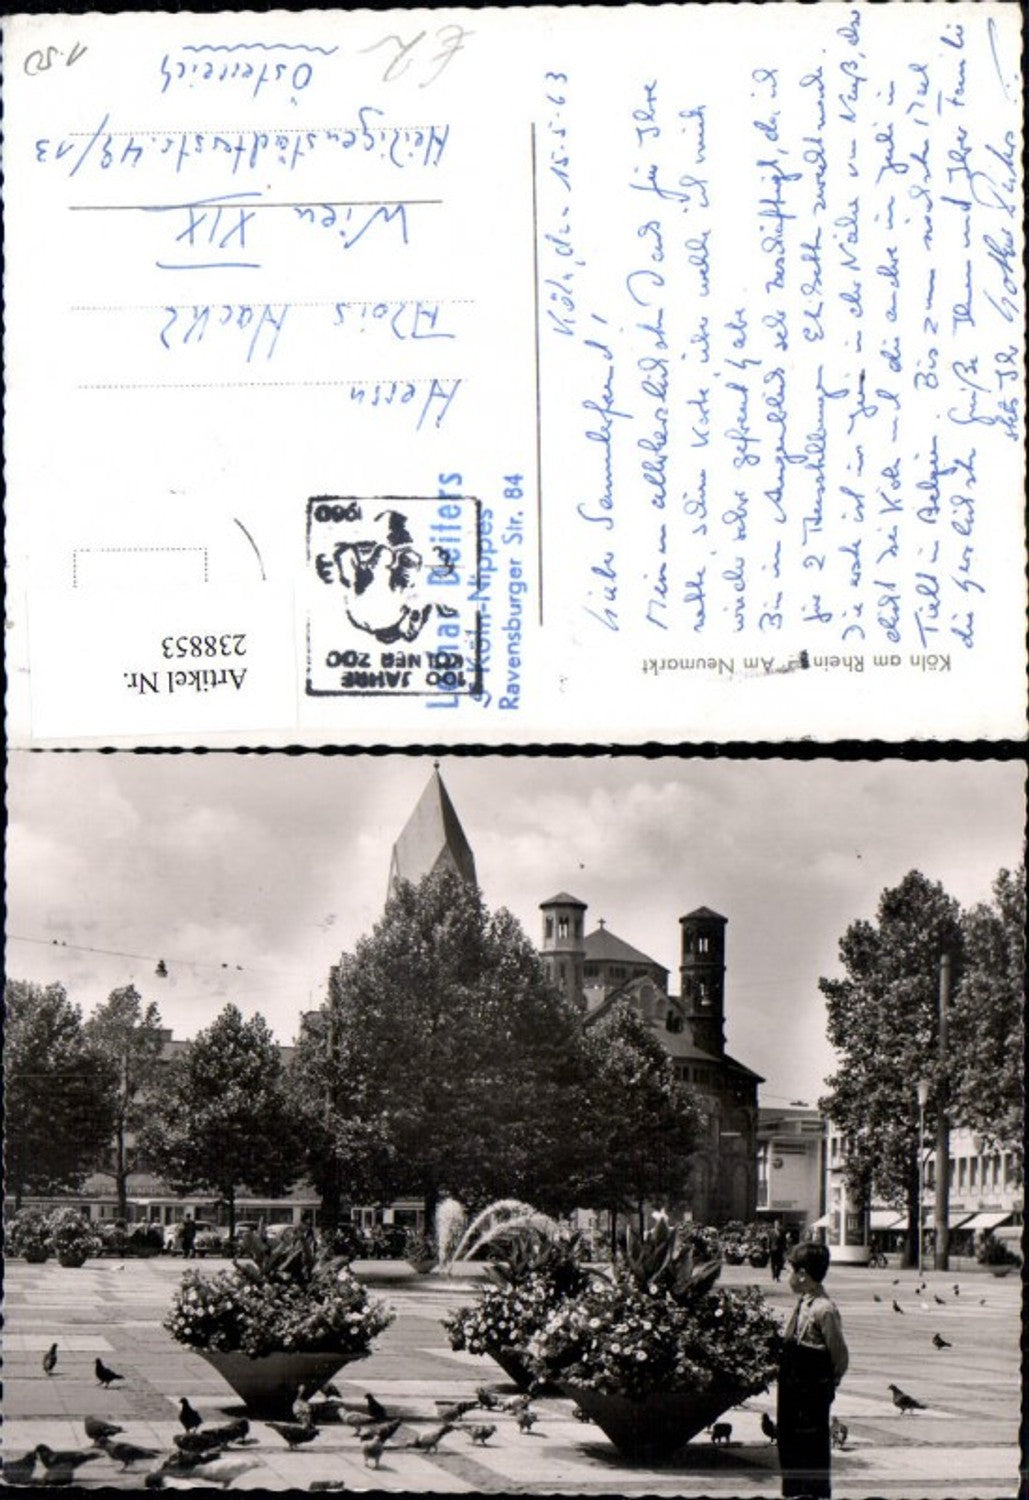 Köln, den 15.5.63
Lieber Sammlerfreund!
Meinen allerherzlichsten Dank für Ihre
nette, schöne Karte, über welche ich mich
wieder sehr gefreut habe.
Bin im Augenblick sehr beschäftigt, da ich
für 2 Ausstellungen
Die erste ist im Juni in der Nähe von Neuß, das
bei Köln und die andere im Juli in
in Belgien. Bis zum nächsten Mal
die herzlichsten Grüße Ihnen und Ihrer Familie
stets Ihr Lothar
Köln am Rhein Am Neumarkt
Herrn
Alois Hackl
Wien XIX
Heiligenstädterstr. 43/13
Österreich
1.50
100 JAHRE
KÖLNER ZOO
1960
Lothar Deiters
5 Köln-Nippes
Ravensburger Str. 84
Artikel Nr.
238853